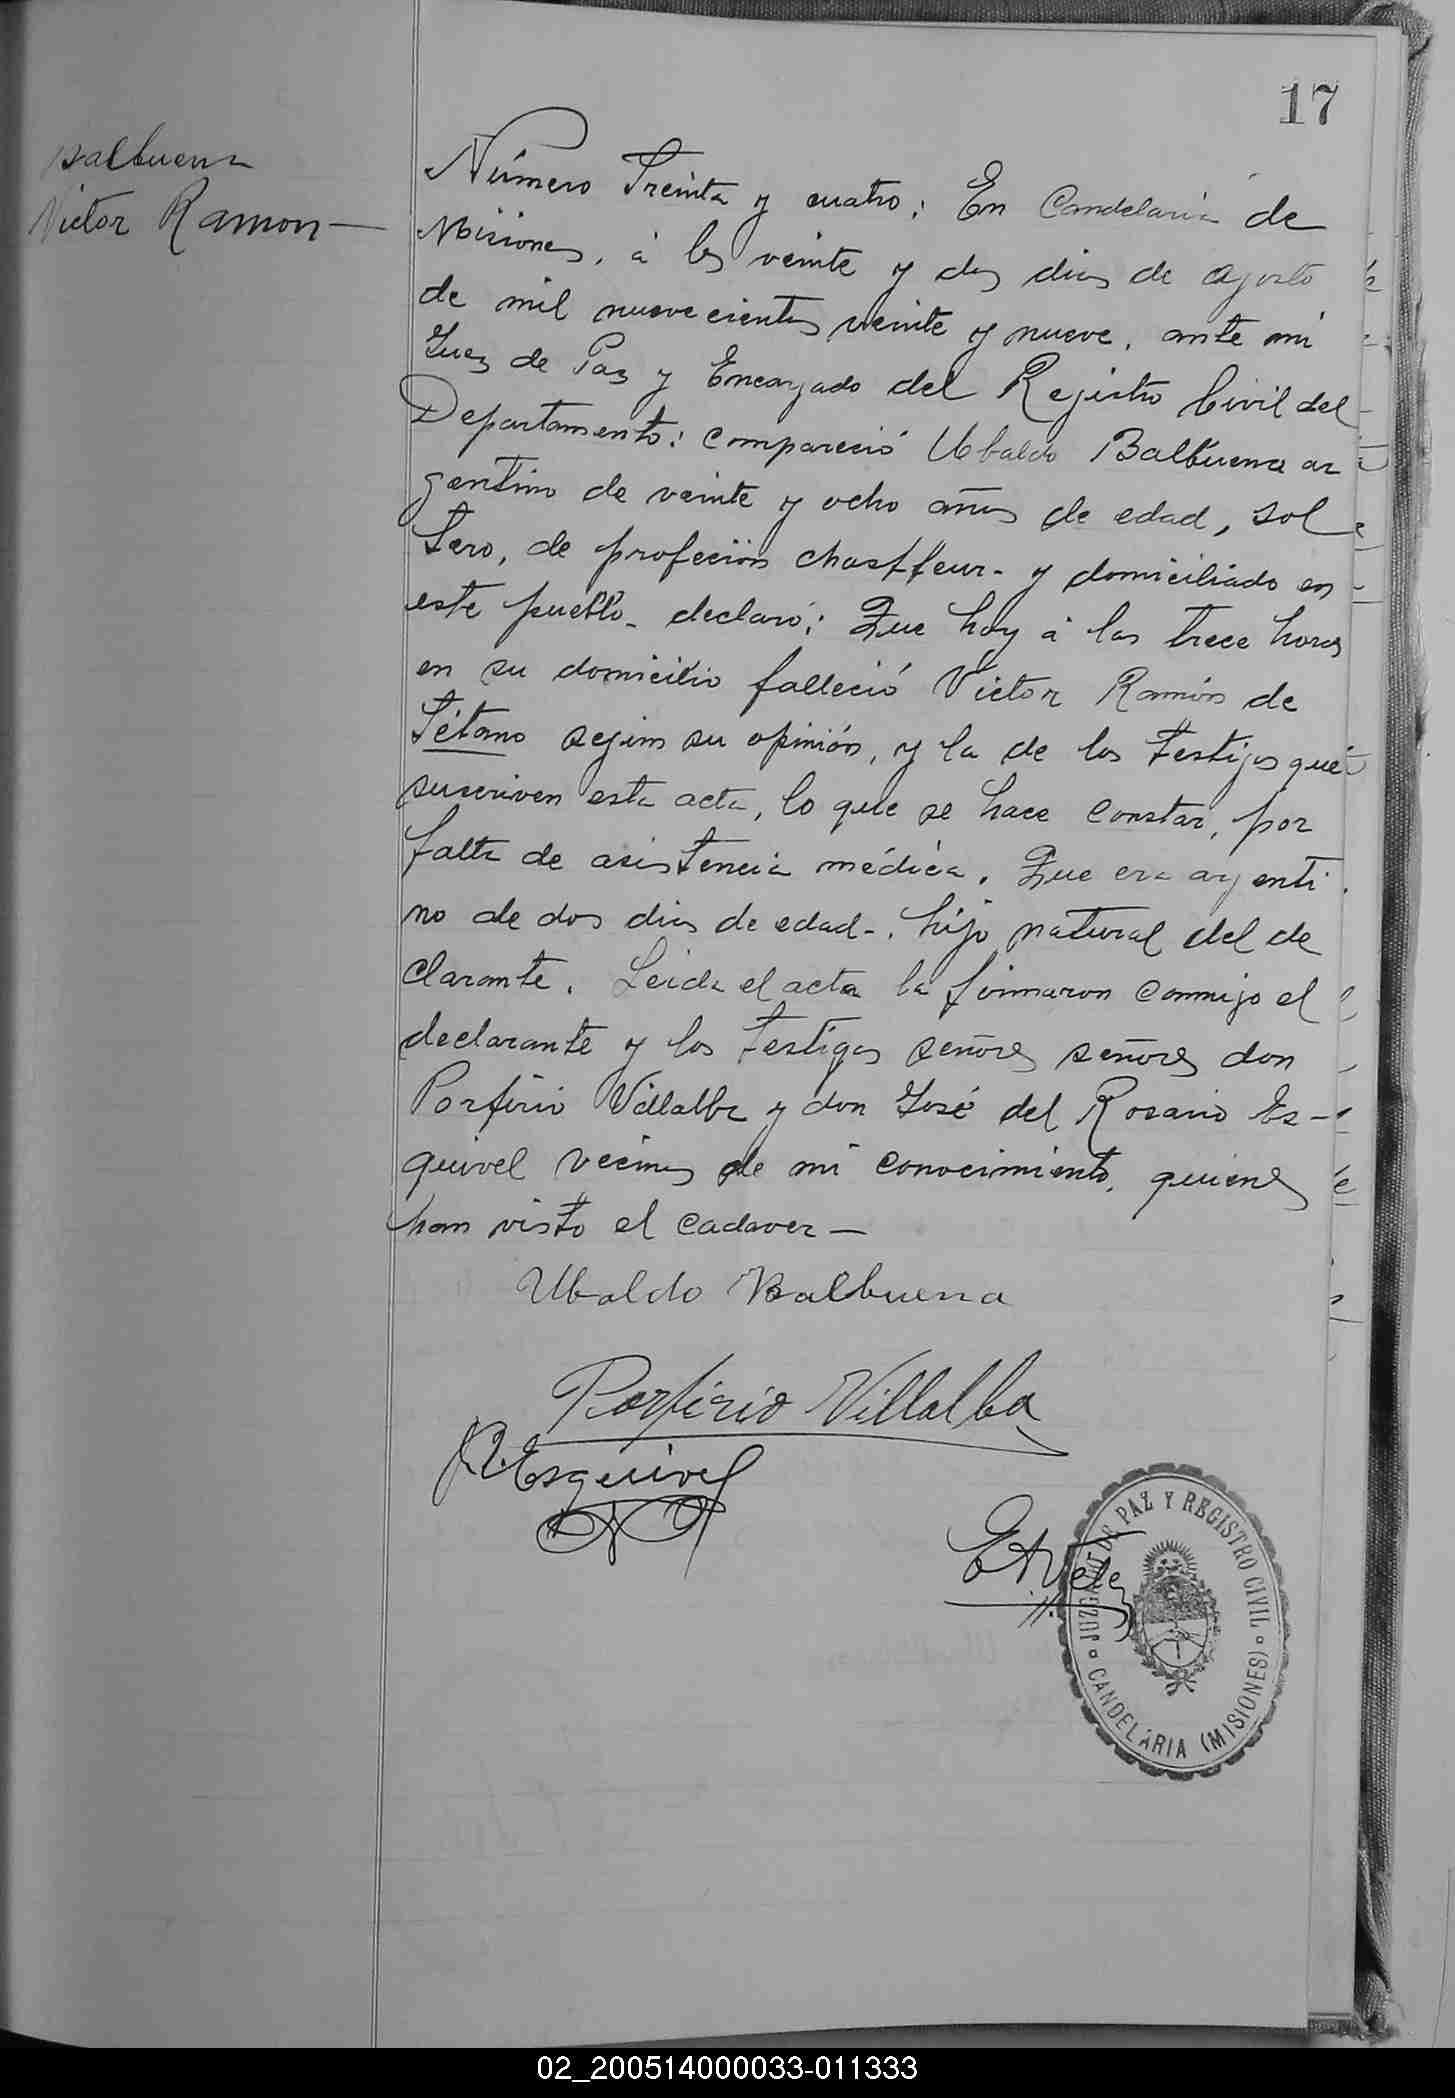 17
Balbuena
Victor Ramon —
Número Treinta y cuatro: En Candelaria de
Misiones, á los veinte y dos dias de Agosto
de mil nuevecientos veinte y nueve, ante mi
Juez de Paz y Encargado del Registro Civil del
Departamento: compareció Ubaldo Balbuena ar
gentino de veinte y ocho años de edad, sol
tero, de profeción chaffeur - y domiciliado en
este pueblo - declaró: Que hoy á las trece horas
en su domicilio falleció Victor Ramón de
Tétano segun su opinión, y la de los testigos que
suscriven esta acta, lo que se hace constar, por
falta de asistencia médica. Que era argenti
no de dos dias de edad -, hijo natural del de
clarante. Leida el acta la firmaron conmigo el
declarante y los testigos señores señores don
Porfirio Villalba y don José del Rosario Es-
quivel vecinos de mi conocimiento, quienes
han visto el cadaver —
Ubaldo Balbuena
Porfirio Villalba
J.R. Esquivel
JUZGADO DE PAZ Y REGISTRO CIVIL
CANDELARIA (MISIONES)
02_200514000033-011333